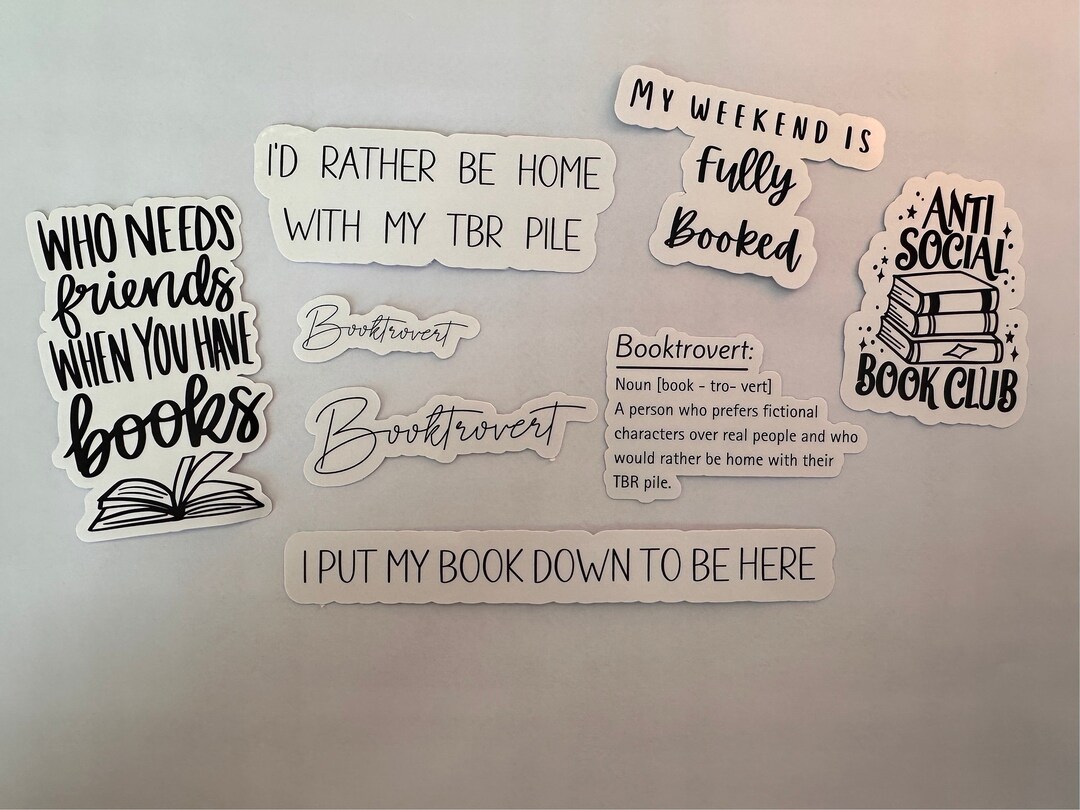 WHO NEEDS
friends
WHEN YOU HAVE
books
I'D RATHER BE HOME
WITH MY TBR PILE
MY WEEKEND IS
Fully
Booked
ANTI
SOCIAL
BOOK CLUB
Booktrovert
Booktrovert
Booktrovert:
Noun [book - tro- vert]
A person who prefers fictional
characters over real people and who
would rather be home with their
TBR pile.
I PUT MY BOOK DOWN TO BE HERE